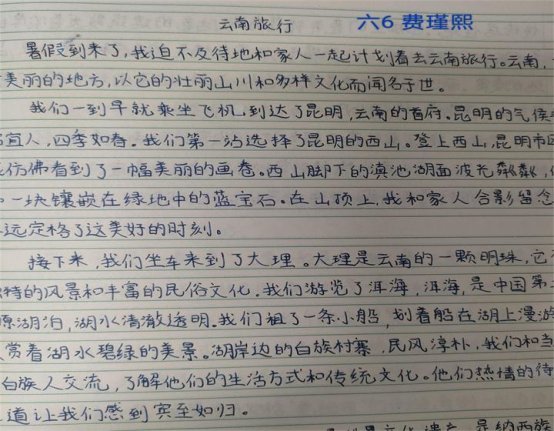 云南旅行 六6 费瑾熙
暑假到来了,我迫不及待地和家人一起计划着去云南旅行。云南,
美丽的地方,以它的壮丽山川和多样文化而闻名于世。
我们一到早就乘坐飞机,到达了昆明,云南的首府。昆明的气候
宜人,四季如春。我们第一站选择了昆明的西山。登上西山,昆明市
仿佛看到了一幅美丽的画卷。西山脚下的滇池湖面波光粼粼,
一块镶嵌在绿地中的蓝宝石。在山顶上,我和家人合影留念
远定格了这美好的时刻。
接下来,我们坐车来到了大理。大理是云南的一颗明珠,它
特的风景和丰富的民俗文化。我们游览了洱海,洱海,是中国第
原湖泊,湖水清澈透明。我们租了一条小船,划着船在湖上漫游
赏着湖水碧绿的美景。湖岸边的白族村寨,民风淳朴,我们和当
白族人交流,了解他们的生活方式和传统文化。他们热情的待
道让我们感到宾至如归。